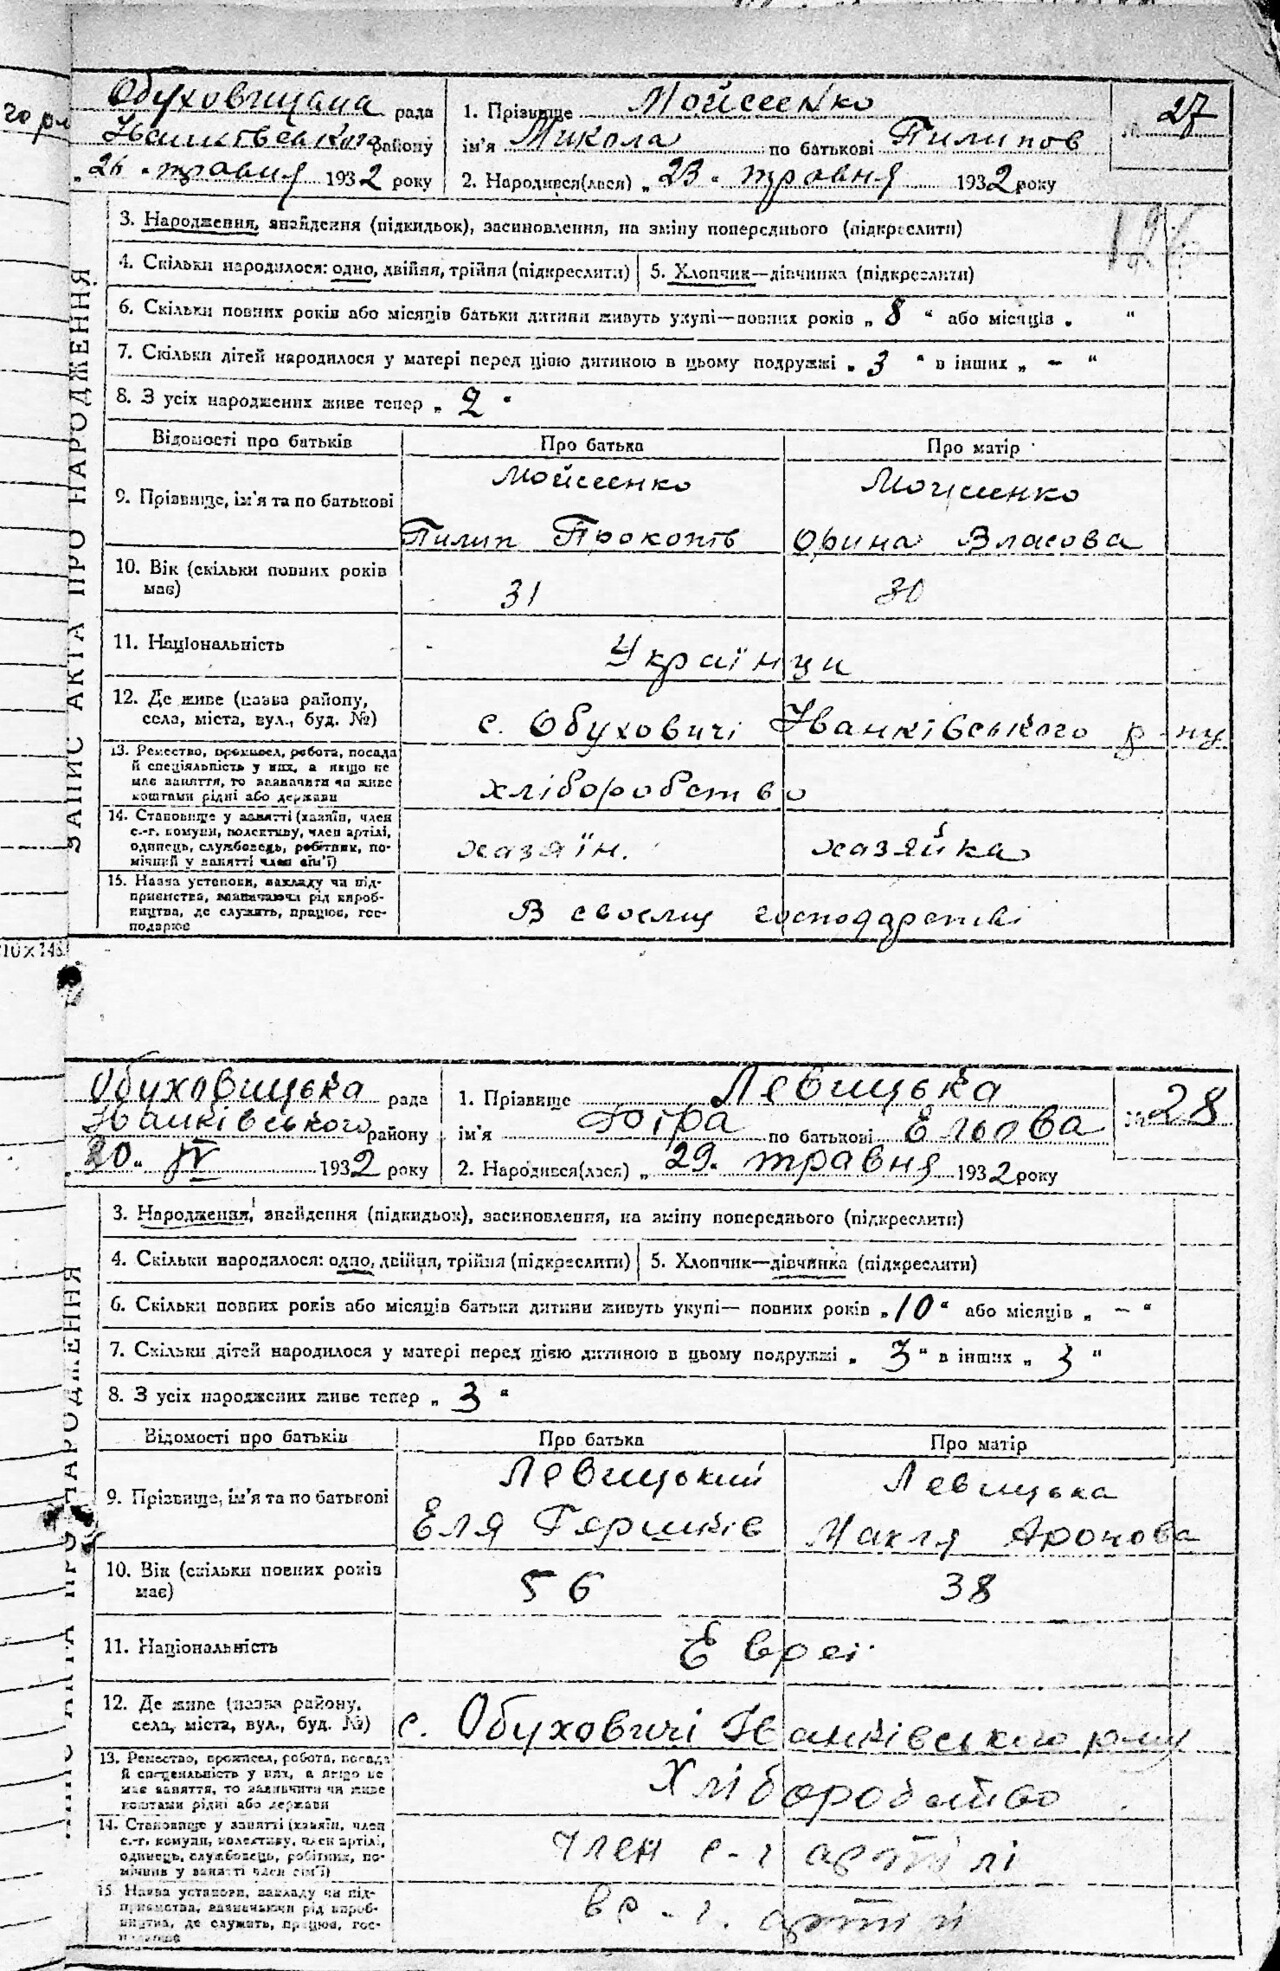 Обуховицька рада
Іванківського району
„26 „ травня 1932 року
1. Прізвище Мойсеенко
ім'я Микола по батькові Пилипов
2. Народився(лася) „ 23 „ травня 1932 року
№ 27
ЗАПИС АКТА ПРО НАРОДЖЕННЯ
3. Народження, знайдення (підкидьок), засиновлення, на зміну попереднього (підкреслити)
4. Скільки народилося: одно, двійня, трійня (підкреслити)
5. Хлопчик—дівчинка (підкреслити)
6. Скільки повних років або місяців батьки дитини живуть укупі—повних років „ 8 “ або місяців „ “
7. Скільки дітей народилося у матері перед цією дитиною в цьому подружжі „ 3 “ в інших „ – “
8. З усіх народжених живе тепер „ 2 “
Відомості про батьків Про батька Про матір
9. Прізвище, ім'я та по батькові
Мойсеенко
Пилип Прокопів
Мойсеенко
Орина Власова
10. Вік (скільки повних років
має)
31 30
11. Національність
Українци
12. Де живе (назва району,
села, міста, вул., буд. №)
с. Обуховичі Іванківського р-ну
13. Ремество, промисел, робота, посада
й спеціяльність у них, а якщо не
має заняття, то зазначити чи живе
коштами рідні або держави
хліборобство
14. Становище у занятті (хазяїн, член
с.-г. комуни, колективу, член артілі,
одинець, службовець, робітник, по-
мічний у занятті член сім'ї)
хазяїн. хазяйка
15. Назва установи, закладу чи під-
приємства, зазначаючи рід вироб-
ництва, де служить, працює, гос-
подарює
В своєму господарстві
Обуховицька рада
Іванківського району
30. IV 1932 року
1. Прізвище Левицька
ім'я по батькові Ельова
2. Народився(лася) „ 29. травня 1932 року
№ 28
ЗАПИС АКТА ПРО НАРОДЖЕННЯ
3. Народження, знайдення (підкидьок), засиновлення, на зміну попереднього (підкреслити)
4. Скільки народилося: одно, двійня, трійня (підкреслити)
5. Хлопчик—дівчинка (підкреслити)
6. Скільки повних років або місяців батьки дитини живуть укупі— повних років „10“ або місяців „ – “
7. Скільки дітей народилося у матері перед цією дитиною в цьому подружжі „ 3 “ в інших „ 3 “
8. З усіх народжених живе тепер „ 3 “
Відомості про батьків Про батька Про матір
9. Прізвище, ім'я та по батькові
Левицький
Еля Гершків
Левицька
Махля Аронова
10. Вік (скільки повних років
має)
56 38
11. Національність
Евреї
12. Де живе (назва району,
села, міста, вул., буд. №)
с. Обуховичі Іванківського р-ну
13. Ремество, промисел, робота, посада
й спеціяльність у них, а якщо не
має заняття, то зазначити чи живе
коштами рідні або держави
Хліборобство
14. Становище у занятті (хазяїн, член
с.-г. комуни, колективу, член артілі,
одинець, службовець, робітник, по-
мічний у занятті член сім'ї)
член с-г артілі
15. Назва установи, закладу чи під-
приємства, зазначаючи рід вироб-
ництва, де служить, працює, гос-
подарює
в с-г. артілі